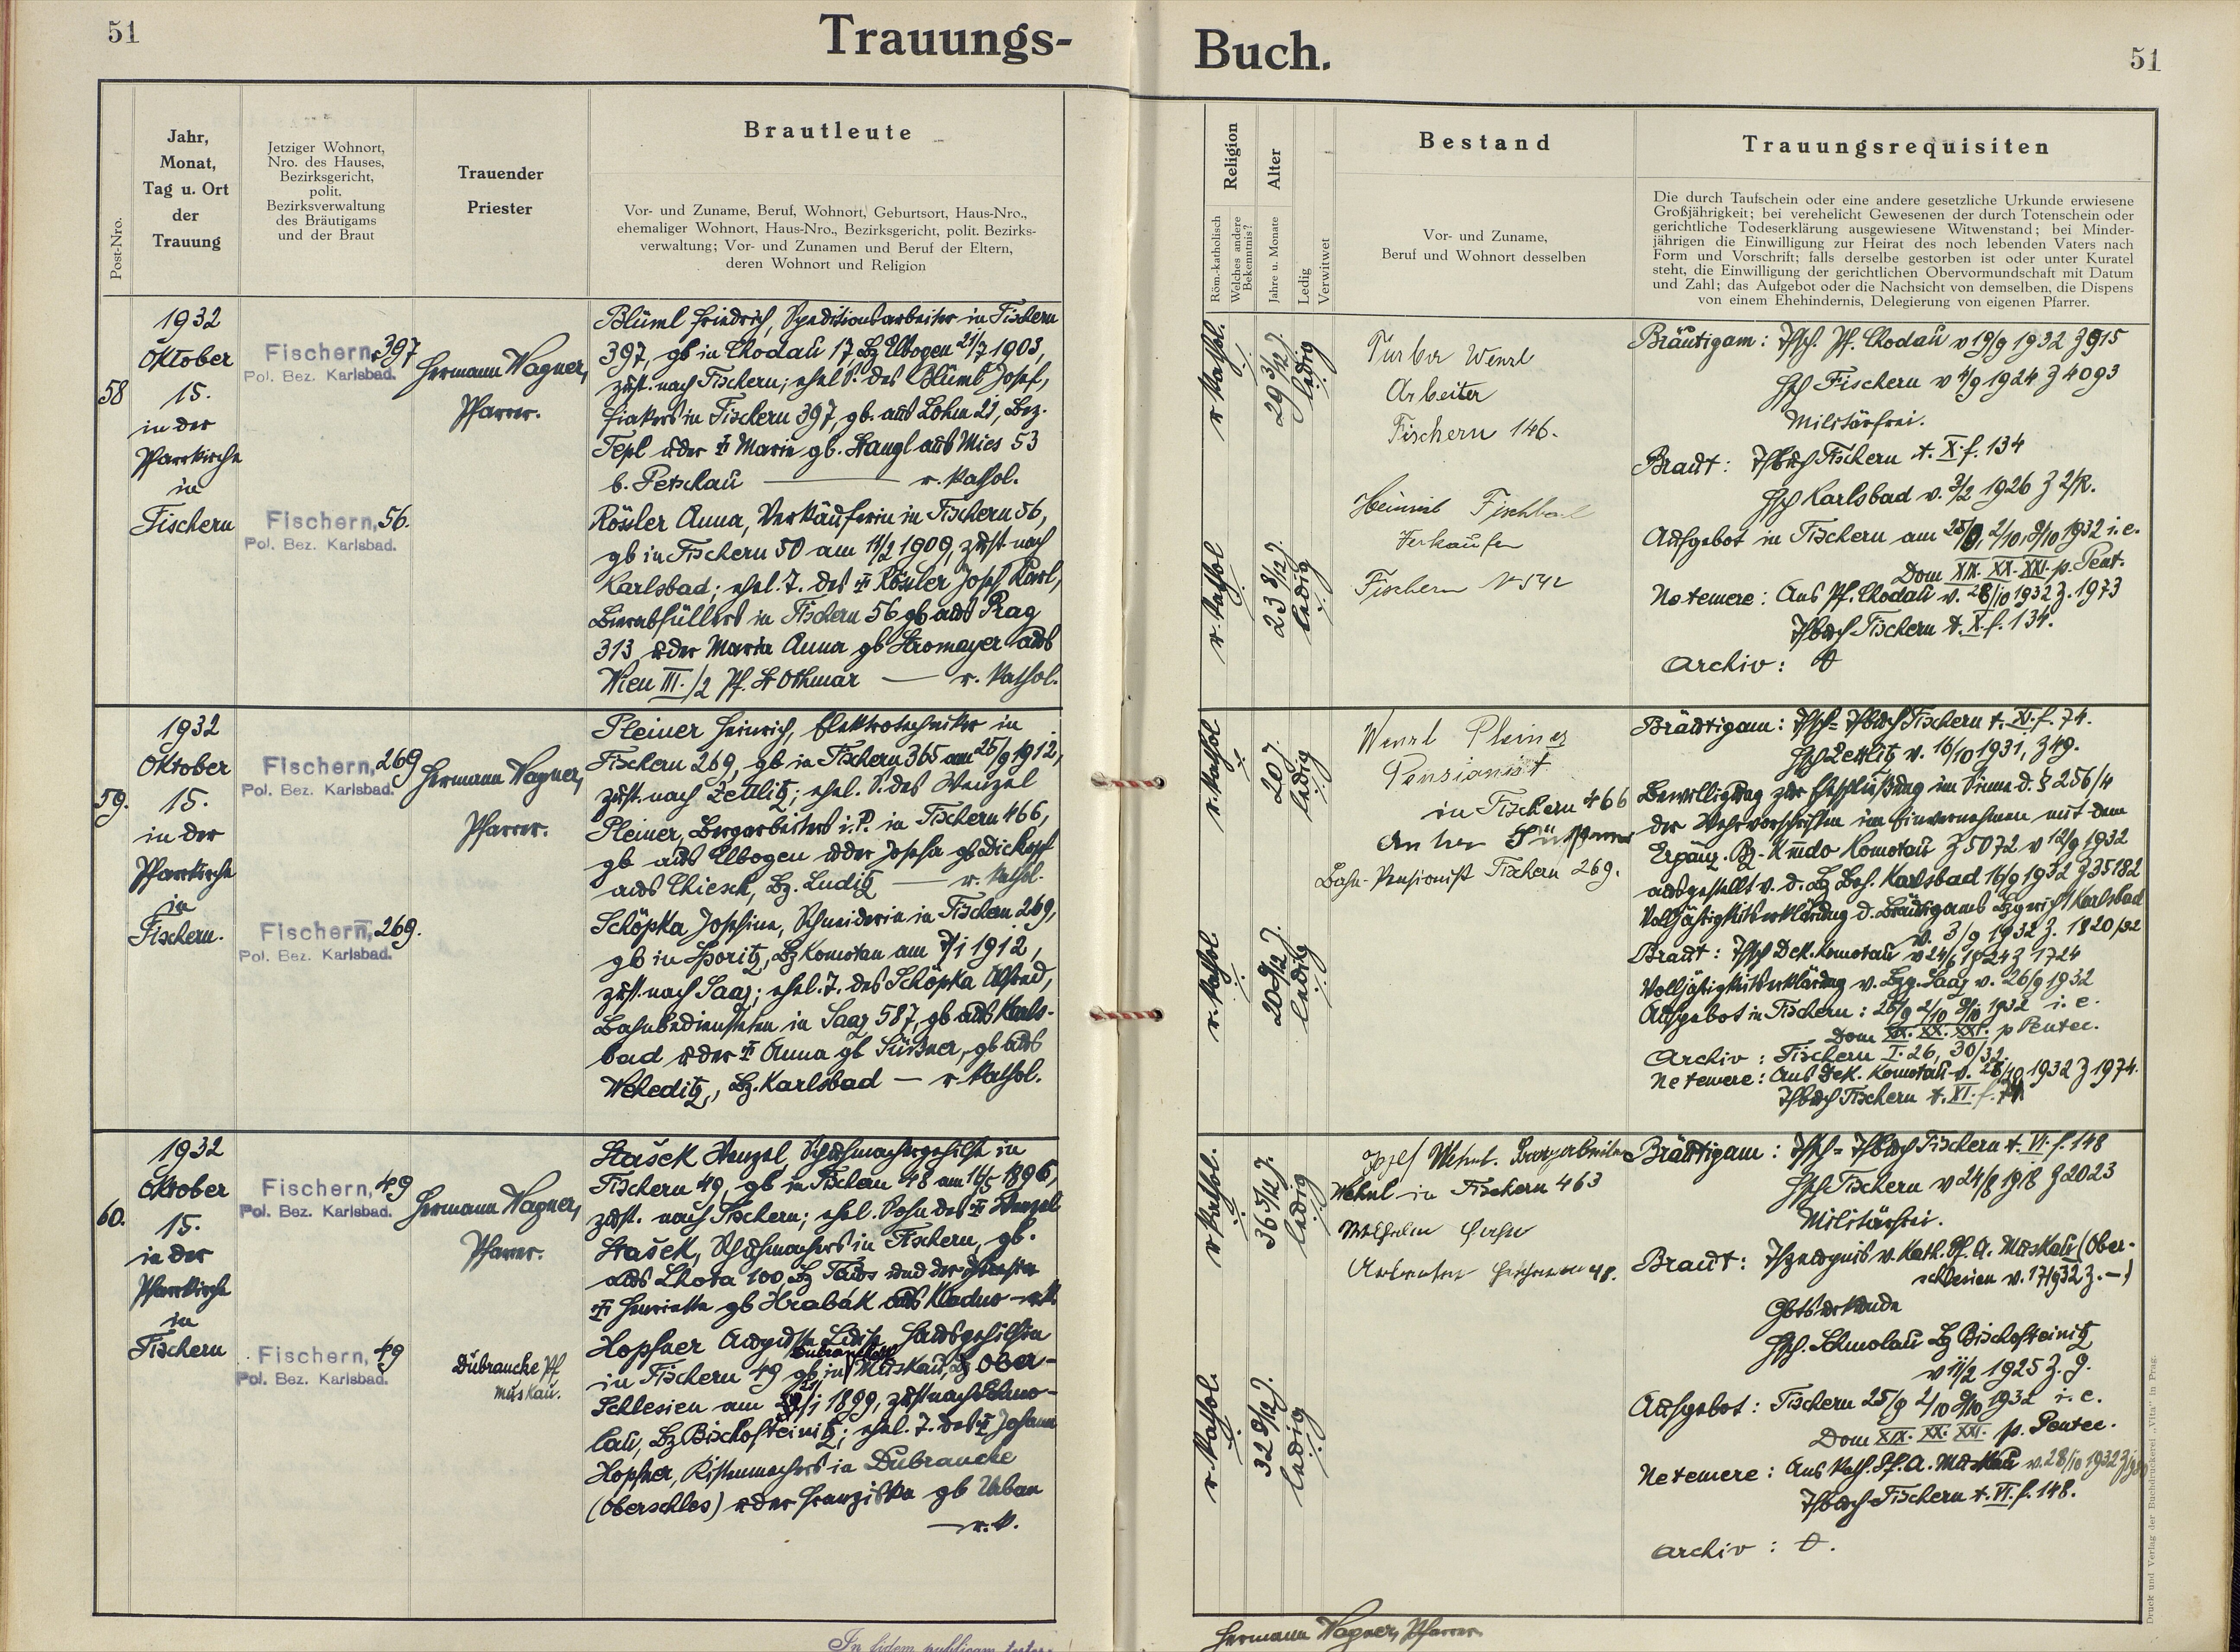 51
Trauungs-
Buch.
51
Post-Nro.
Jahr,
Monat,
Tag u. Ort
der
Trauung
Jetziger Wohnort,
Nro. des Hauses,
Bezirksgericht,
polit.
Bezirksverwaltung
des Bräutigams
und der Braut
Trauender
Priester
Brautleute
Vor- und Zuname, Beruf, Wohnort, Geburtsort, Haus-Nro.,
ehemaliger Wohnort, Haus-Nro., Bezirksgericht, polit. Bezirks-
verwaltung; Vor- und Zunamen und Beruf der Eltern,
deren Wohnort und Religion
Religion
Röm.-katholisch
Welches andere
Bekenntnis?
Alter
Jahre u. Monate
Ledig
Verwitwet
Bestand
Vor- und Zuname,
Beruf und Wohnort desselben
Trauungsrequisiten
Die durch Taufschein oder eine andere gesetzliche Urkunde erwiesene
Großjährigkeit; bei verehelicht Gewesenen der durch Totenschein oder
gerichtliche Todeserklärung ausgewiesene Witwenstand; bei Minder-
jährigen die Einwilligung zur Heirat des noch lebenden Vaters nach
Form und Vorschrift; falls derselbe gestorben ist oder unter Kuratel
steht, die Einwilligung der gerichtlichen Obervormundschaft mit Datum
und Zahl; das Aufgebot oder die Nachsicht von demselben, die Dispens
von einem Ehehindernis, Delegierung von eigenen Pfarrer.
58
1932
Oktober
15.
in der
Pfarrkirche
in
Fischern
Fischern, 397
Pol. Bez. Karlsbad.
Fischern, 56.
Pol. Bez. Karlsbad.
Hermann Wagner,
Pfarrer.
Blüml Friedrich, Speditionsarbeiter in Fischern
397, gb in Chodau 17, Bz Elbogen 21/7 1903,
zust. nach Fischern; ehel. S. des Blüml Josef,
Fiakers in Fischern 397, gb. aus Lohm 21, Bez.
Tepl u der Marie gb. Stangl aus Mies 53
b. Petschau — r. kathol.
Rössler Anna, Verkäuferin in Fischern 56,
gb in Fischern 50 am 11/2 1909, zust nach
Karlsbad; ehel. T. des Rössler Josef Karl,
Bierabfüllers in Fischern 56 gb aus Prag
313 u der Maria Anna gb Stromayer aus
Wien III./2 Pf. St Othmar — r. kathol.
r kathol.
29 3/12 J.
ledig
r. kathol
23 8/12 J.
ledig
Wenzl
Arbeiter
Fischern 146.
Fischern N 542
Bräutigam: Tfsch. Pf. Chodau v 19/9 1932 Z 915
Hsch Fischern v 4/9 1924 Z 4093
Militärfrei.
Braut: Tfbuch Fischern t. X. f. 134
Hsch Karlsbad v. 3/2 1926 Z 2/R.
Aufgebot in Fischern am 25/9, 2/10, 9/10 1932 i. e.
Dom XIX. XX. XXI. p. Pent.
Ne temere: Aus Pf. Chodau v. 28/10 1932 Z. 1973
Tfbuch Fischern t. X. f. 134.
Archiv:
59.
1932
Oktober
15.
in der
Pfarrkirche
in
Fischern.
Fischern, 269
Pol. Bez. Karlsbad.
Fischern, 269.
Pol. Bez. Karlsbad.
Hermann Wagner,
Pfarrer.
Pleiner Heinrich, Elektrotechniker in
Fischern 269, gb in Fischern 365 am 25/9 1912,
zust. nach Zettlitz; ehel. S. des Wenzel
Pleiner, Bergarbeiters i. P. in Fischern 466,
gb aus Elbogen u der Josefa gb Dickopf
aus Chiesch, Bz. Luditz — r. kathol.
Schöpka Josefine, Schneiderin in Fischern 269,
gb in Sporitz, Bz Komotau am 7/1 1912,
zust. nach Saaz; ehel. T. des Schöpka Alfred,
Bahnbediensteten in Saaz 587, gb aus Karls-
bad u der Anna gb Süßner, gb aus
Weheditz, Bz. Karlsbad — r. kathol.
r. kathol
20 J.
ledig
r. kathol.
20 9/12 J.
ledig
Wenzl Pleiner
Pensionist
in Fischern 466
Bahn-Pensionist Fischern 269.
Bräutigam: Tfsch = Tfbuch Fischern t. XI. f. 74.
Hsch Zettlitz v. 16/10 1931, Z 49.
Bewilligung zur Eheschließung im Sinne d. § 256/4
der Wehrvorschriften im Einvernehmen mit dem
Ergänz. Bz-Kmdo Komotau Z 5072 v 12/9 1932
ausgestellt v. d. Bz Beh. Karlsbad 16/9 1932 Z 35182
Volljährigkeitserklärung d. Bräutigams Bzgericht Karlsbad
v. 3/9 1932 Z. 1820/32
Braut: Tfsch Dek. Komotau v 24/6 1924 Z 1724
Volljährigkeitserklärung v. Bzg. Saaz v. 26/9 1932
Aufgebot in Fischern: 25/9 2/10 9/10 1932 i. e.
Dom XIX. XX. XXI. p Pentec.
Archiv: Fischern I. 26, 30/32.
Ne temere: Aus Dek. Komotau v. 28/10 1932 Z 1974.
Tfbuch Fischern t. XI. f. 74.
60.
1932
Oktober
15.
in der
Pfarrkirche
in
Fischern
Fischern, 49
Pol. Bez. Karlsbad.
Fischern, 49
Pol. Bez. Karlsbad.
Hermann Wagner,
Pfarrer.
Dubraucke Pf
Muskau.
Stašek Wenzel, Schuhmachergehilfe in
Fischern 49, gb in Fischern 48 am 14/5 1896,
zust. nach Fischern; ehel. Sohn des Wenzel
Stašek, Schuhmachers in Fischern, gb.
aus Lhota 100, Bz Taus und der
Henriette gb Hrabák aus Kladno — r. k.
Hopfner Auguste Hausgehilfin
in Fischern 49 gb in Muskau, Bz Ober-
Schlesien am 1899, zust nach Schmo-
lau, Bz Bischofteinitz; ehel. T. des Johann
Hopfner, Kistenmachers in Dubraucke
(Oberschles) u der Franziska gb Urban
— r. k.
r kathol.
36 5/12 J.
ledig
r. kathol.
32 9/12 J.
ledig
Josef Wehnl. Bergarbeiter
Wehnl in Fischern 463
Wilhelm
48.
Bräutigam: Tfsch = Tfbuch Fischern t. VI. f. 148
Hsch Fischern v 24/8 1918 Z 2023
Militärfrei.
Braut: Tfzeugnis v. Kath. Pf. A. Muskau (Ober-
schlesien v. 17/9 32 Z. —)
Gbtsurkunde
Hsch. Schmolau Bz Bischofteinitz
v 11/2 1925 Z. 9.
Aufgebot: Fischern 25/9 2/10 9/10 1932 i. e.
Dom XIX. XX. XXI. p. Pentec.
Ne temere: Aus Kath. Pf. A. Muskau v. 28/10 1932
Tfbuch Fischern t. VI. f. 148.
Archiv:
Druck und Verlag der Buchdruckerei „Vita" in Prag.
In fidem publicam
Hermann Wagner, Pfarrer